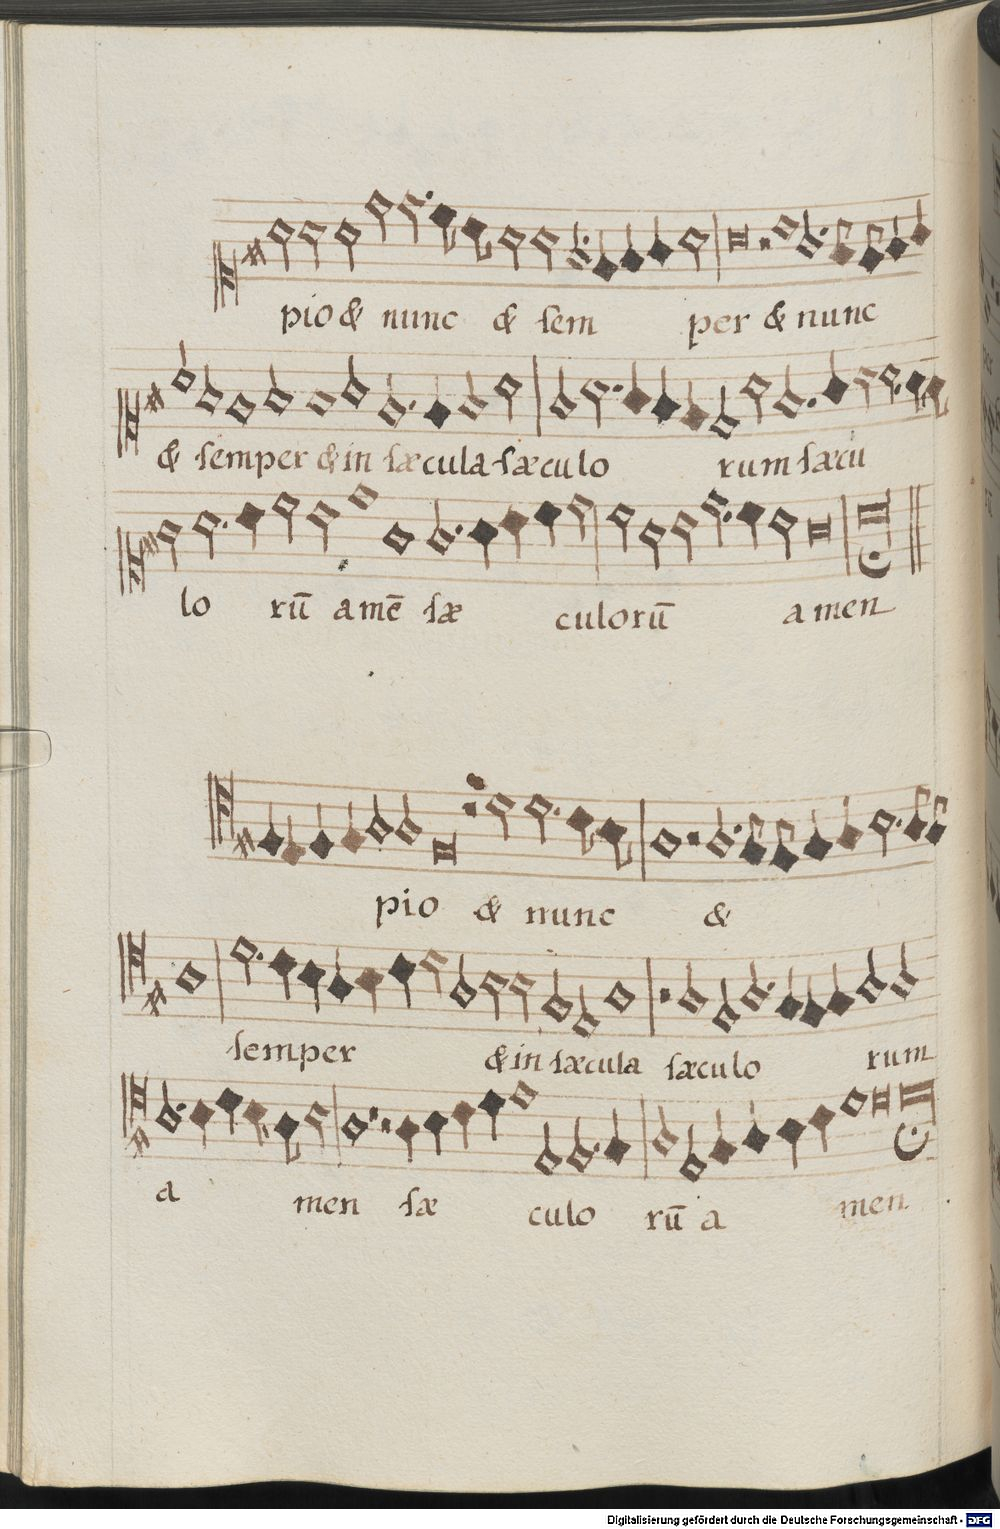 pio & nunc & sem per & nunc
& semper & in sæcula sæculo rum sæcu
lo rū amē sæ culorū amen
pio & nunc &
semper & in sæcula sæculo rum
a men sæ culo rū a men
Digitalisierung gefördert durch die Deutsche Forschungsgemeinschaft - DFG